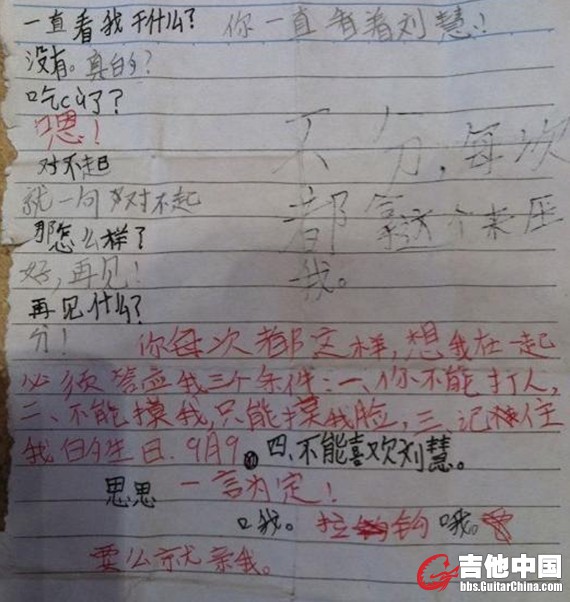 一直看我干什么？ 你一直看着刘慧！
没有。真的？
吃c讠了？
嗯！
对不起
就一句对不起
那怎么样？
好，再见！
再见什么？
分！
不分，每次
都拿这个来压
我。
你每次都这样，想我在一起
必须答应我三个条件：一、你不能打人，
二、不能摸我，只能摸我脸，三、记住
我的生日．9月9 四、不能喜欢刘慧。
思思 一言为定！
口我。 拉钩 哦。
要么就亲我。
吉他中国
bbs.GuitarChina.com